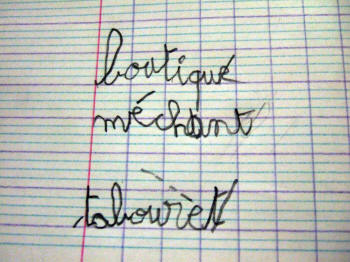 boutique
méchant
tabouret